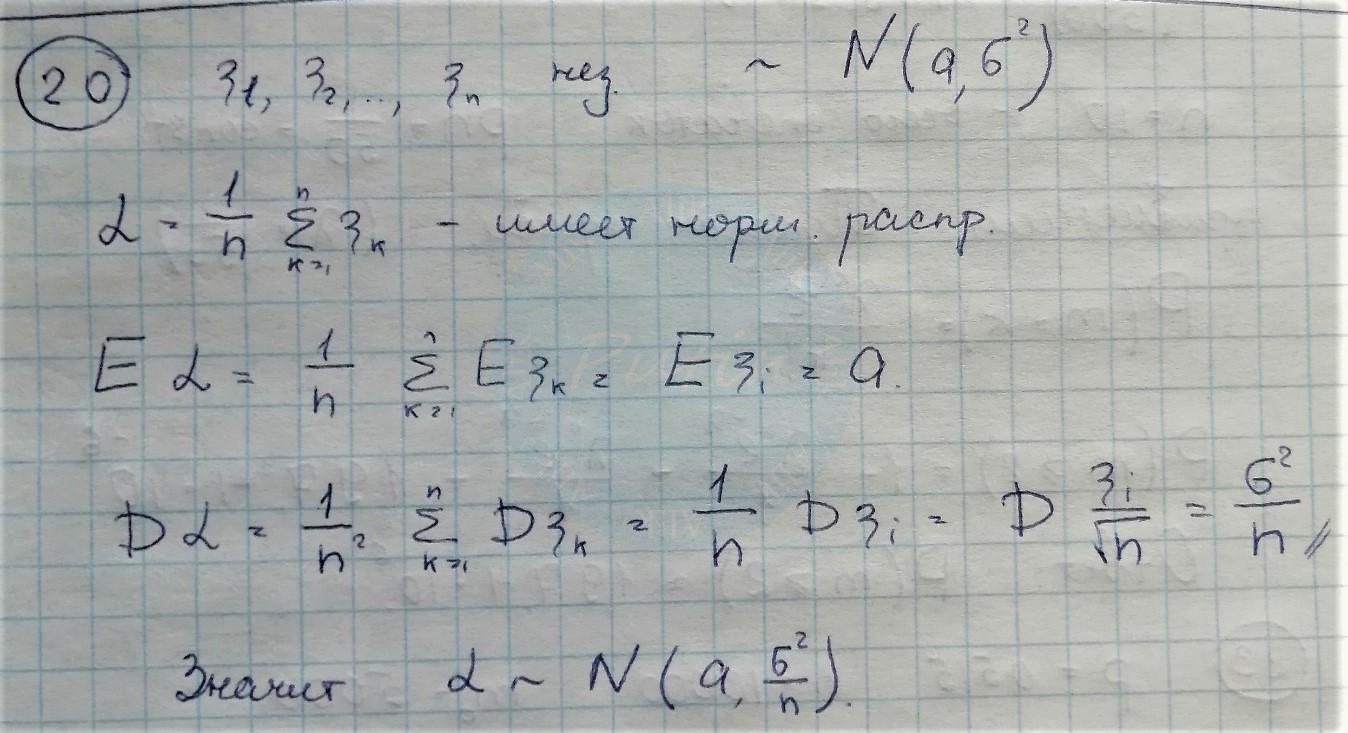 20 ξ₁, ξ₂, ..., ξₙ нез. ~ N(a, σ²)
α = 1/n ∑ₖ₌₁ⁿ ξₖ - имеет норм. распр.
E α = 1/n ∑ₖ₌₁ⁿ E ξₖ = E ξᵢ = a.
D α = 1/n² ∑ₖ₌₁ⁿ D ξₖ = 1/n D ξᵢ = D ξᵢ/√n = σ²/n //
Значит α ~ N(a, σ²/n).